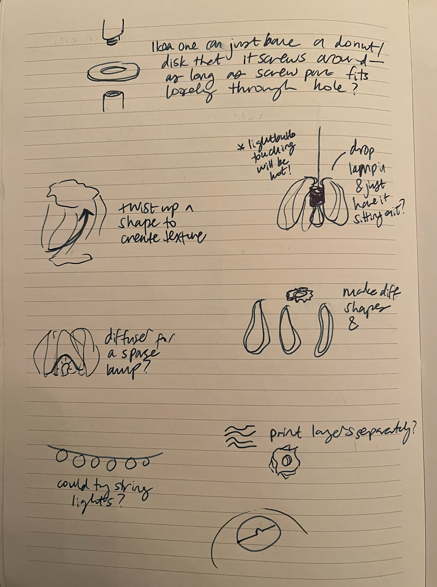 Ikea one can just have a donut/
disk that it screws around—
as long as screw part fits
loosely through hole?
* lightbulb
touching
will be
hot!
drop
lamp in
& just
have it
sitting on it?
twist up a
shape to
create texture
make diff
shapes
&
diffuser for
a space
lamp?
print layers separately?
could try string
lights?